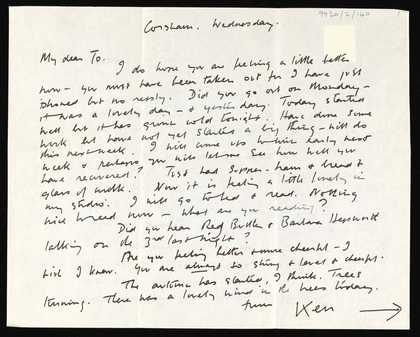 9420/2/140
Corsham. Wednesday.
My dear To.
I do hope you are feeling a little better
now - you must have been taken out for I have just
phoned but no reply. Did you go out on Monday -
it was a lovely day - & yesterday. Today started
well but it has grown cold tonight. Have done some
work but have not yet started a big thing - will do
this next week. I will come up to early next
week & perhaps you will let me see how well you
have recovered? Just had supper - ham & bread &
glass of milk. Now it is feeling a little lonely in
my studio. I will go to bed & read. Nothing
nice to read now - what are you reading?
Did you hear Reg Butler & Barbara Hepworth
talking on the 3rd last night?
Are you feeling better & more cheerful - I
wish I knew. You are always so strong & level & cheerful.
The autumn has started, I think. Trees
turning. There was a lovely wind in the trees today.
from Ken